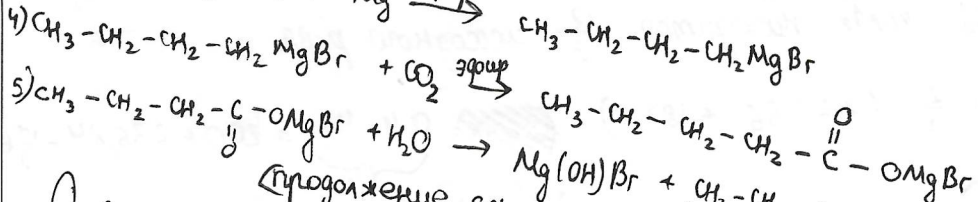 Mg ⟶ CH₃-CH₂-CH₂-CH₂MgBr
4) CH₃-CH₂-CH₂-CH₂MgBr + CO₂ эфир ⟶ CH₃-CH₂-CH₂-CH₂-C(=O)-OMgBr
5) CH₃-CH₂-CH₂-C(=O)-OMgBr + H₂O ⟶ Mg(OH)Br + CH₂-CH
(продолжение